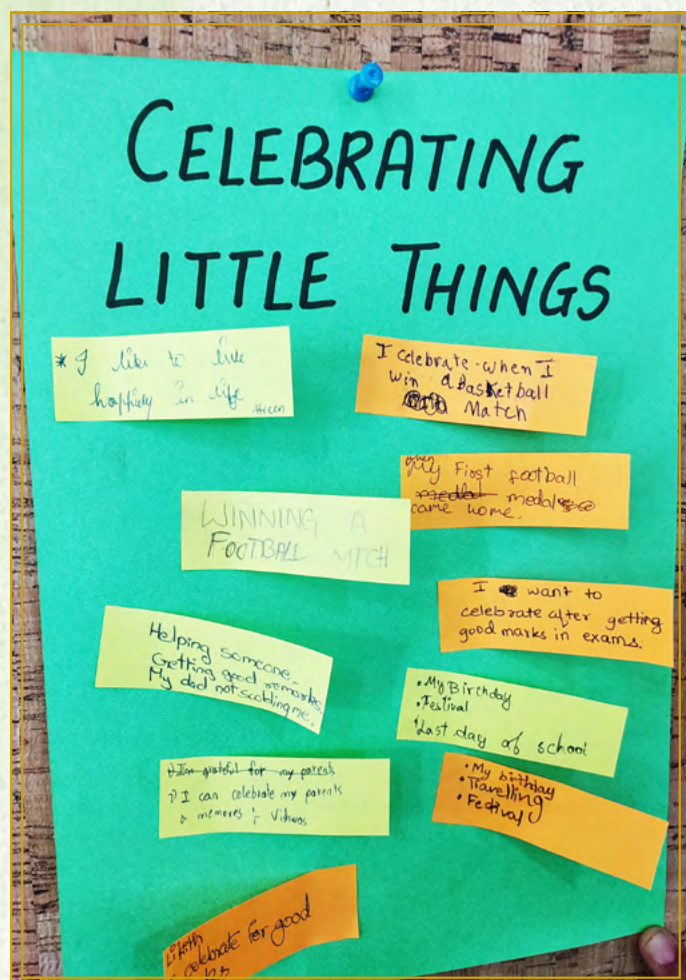 CELEBRATING
LITTLE THINGS
* I like to live
happily in life
I celebrate when I
win a Basketball
Match
when
My First football
medal
came home.
WINNING A
FOOTBALL MTCH
I want to
celebrate after getting
good marks in exams.
Helping someone.
Getting good remarks
My dad not scolding me.
• My Birthday
• Festival
• Last day of school
1) I'm grateful for my parents
1) I can celebrate my parents
& memores
• My birthday
• Travelling
• Festival
Likith
celebrate for good